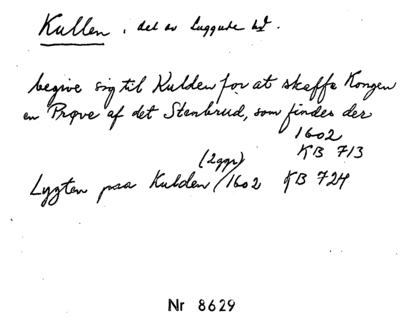 Kullen, det er Luggude hd.
begive sig til Kulden for at skaffe Kongen
en Prøve af det Stenbrud, som findes der
1602
KB 713
(2 ggr)
Lygten paa Kulden / 1602 KB 724
Nr 8629